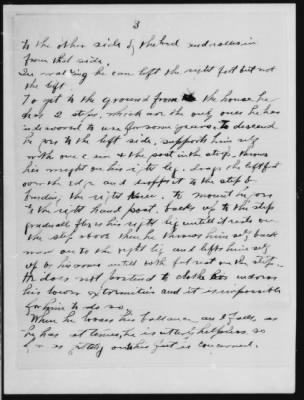 3
to the other side of the bed and
from that side.
In walking he can lift the right foot but not
the left.
To get to the ground from the house he
has 2 steps, which are the only ones he has
endeavored to use for some years. to descend
he goes to the left side, supports himself
with one arm at the post in the step. throws
his weight on his right leg. drags the left foot
over the edge and to the step by
bending the right knee. To mount he goes
to the right hand post, backs up to the step
gradually the right leg until it rests on
the step above then he throws himself back
now over to the right leg and lifts himself
up by his arms until both feet rest on the step.
He does not to clothe his
his lower extremities and it is impossible
for him to do so.
When he looses his ballance and falls, as
he has at times, he is utterly helpless, so
far as getting on his feet is concerned.